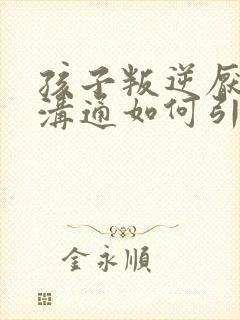 孩子叛逆厌
溝通如何引
金永順